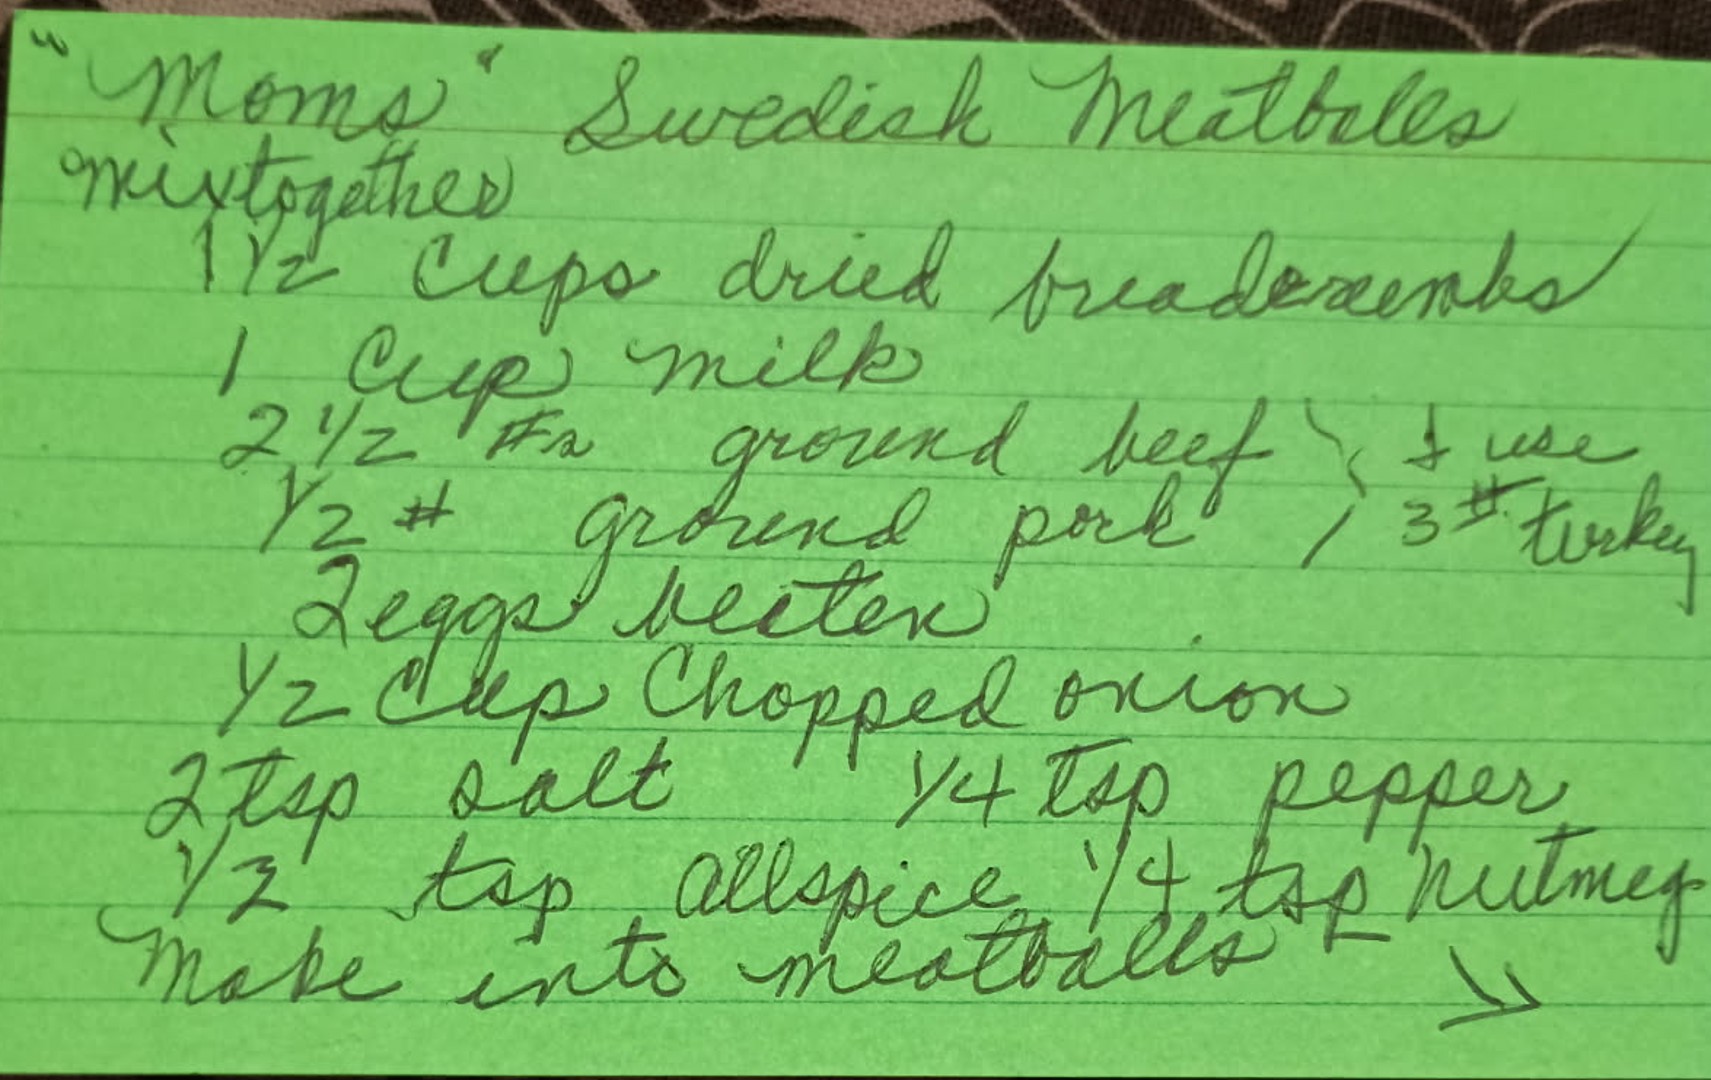 "Moms" Swedish Meatballs
mix together
1 1/2 Cups dried breadcrumbs
1 Cup milk
2 1/2 #s ground beef } I use
1/2 # ground pork 3 # turkey
2 eggs beaten
1/2 Cup Chopped onion
2 tsp salt 1/4 tsp pepper
1/2 tsp allspice 1/4 tsp nutmeg
Make into meatballs